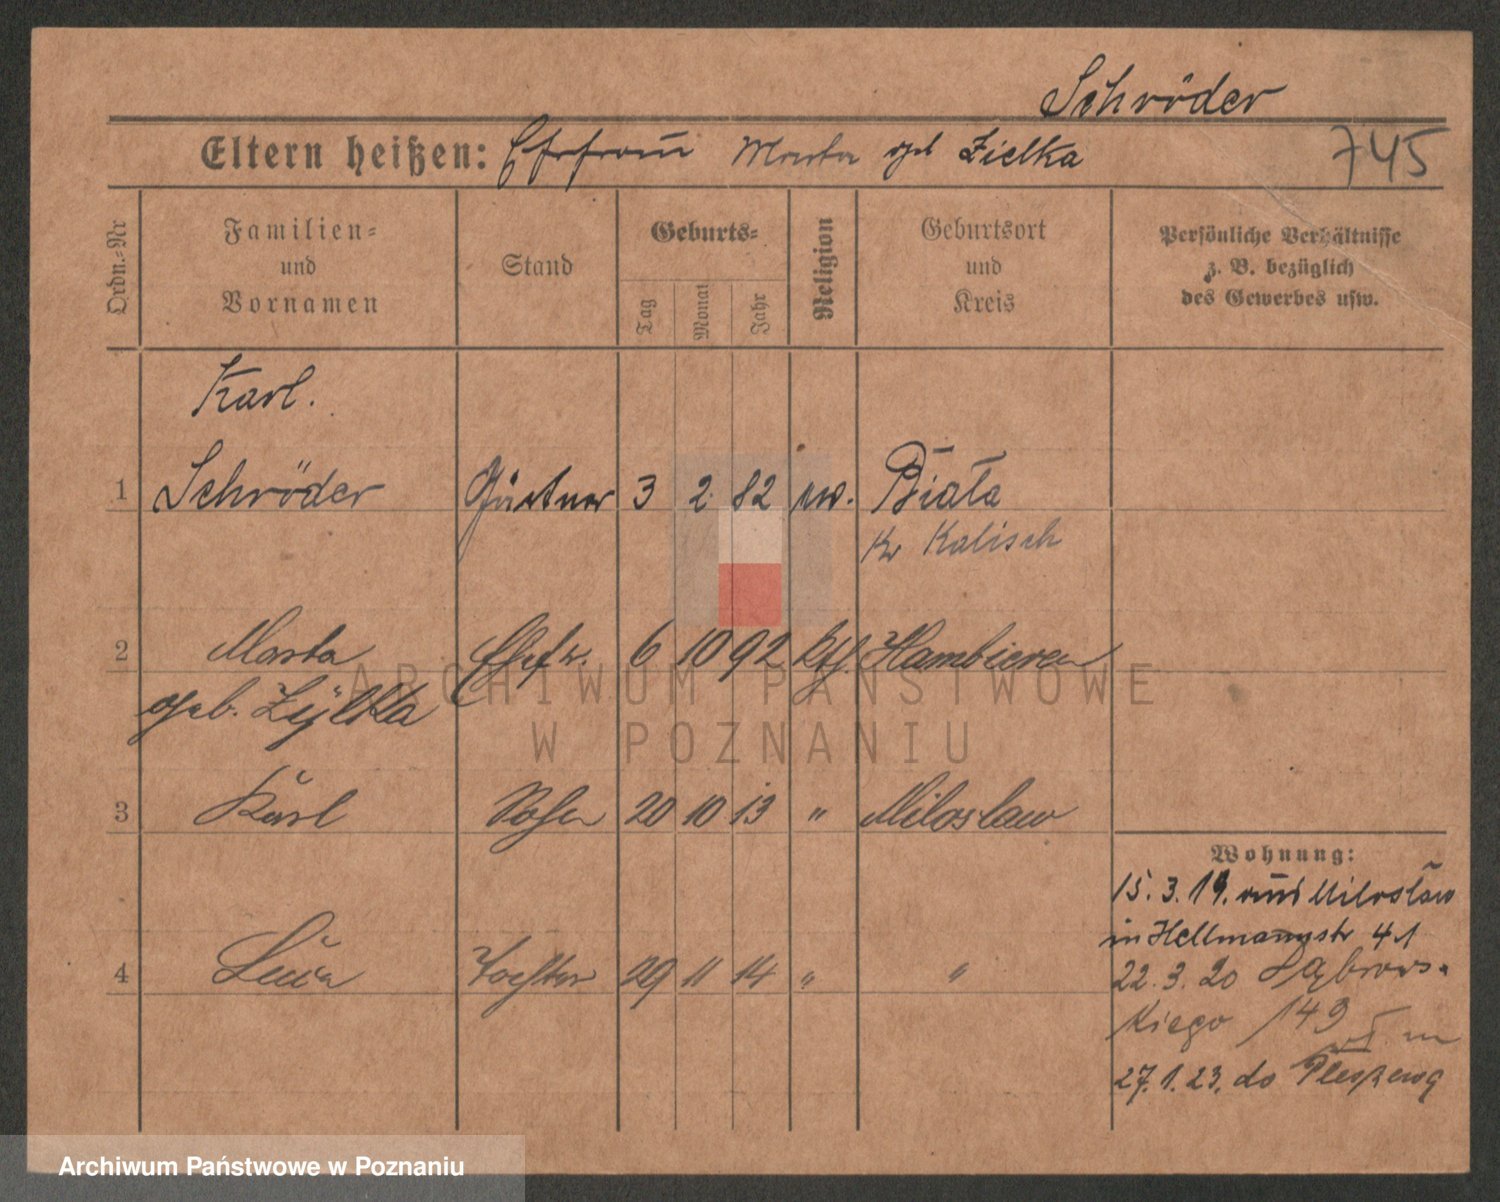 Schröder
Eltern heißen: Ehefrau Marta geb Zielka 745
Ordn.-Nr
Familien-
und
Vornamen
Stand
Geburts-
Tag
Monat
Jahr
Religion
Geburtsort
und
Kreis
Persönliche Verhältnisse
z. B. bezüglich
des Gewerbes usw.
Karl.
1 Schröder Gärtner 3 2. 82 ew. Biała
Kr Kalisch
2 Marta Ehefr. 6 10 92 kth. Hambieren
geb. Zylka
3 Karl Sohn 20 10 13 " Miloslaw
4 Lucia Tochter 29 11 14 " "
Wohnung:
15. 3. 19. aus Miloslaw
in Hellmannstr 41
22. 3. 20 Dąbrows-
kiego 149
27. 1. 23. do
ARCHIWUM PAŃSTWOWE
W POZNANIU
Archiwum Państwowe w Poznaniu